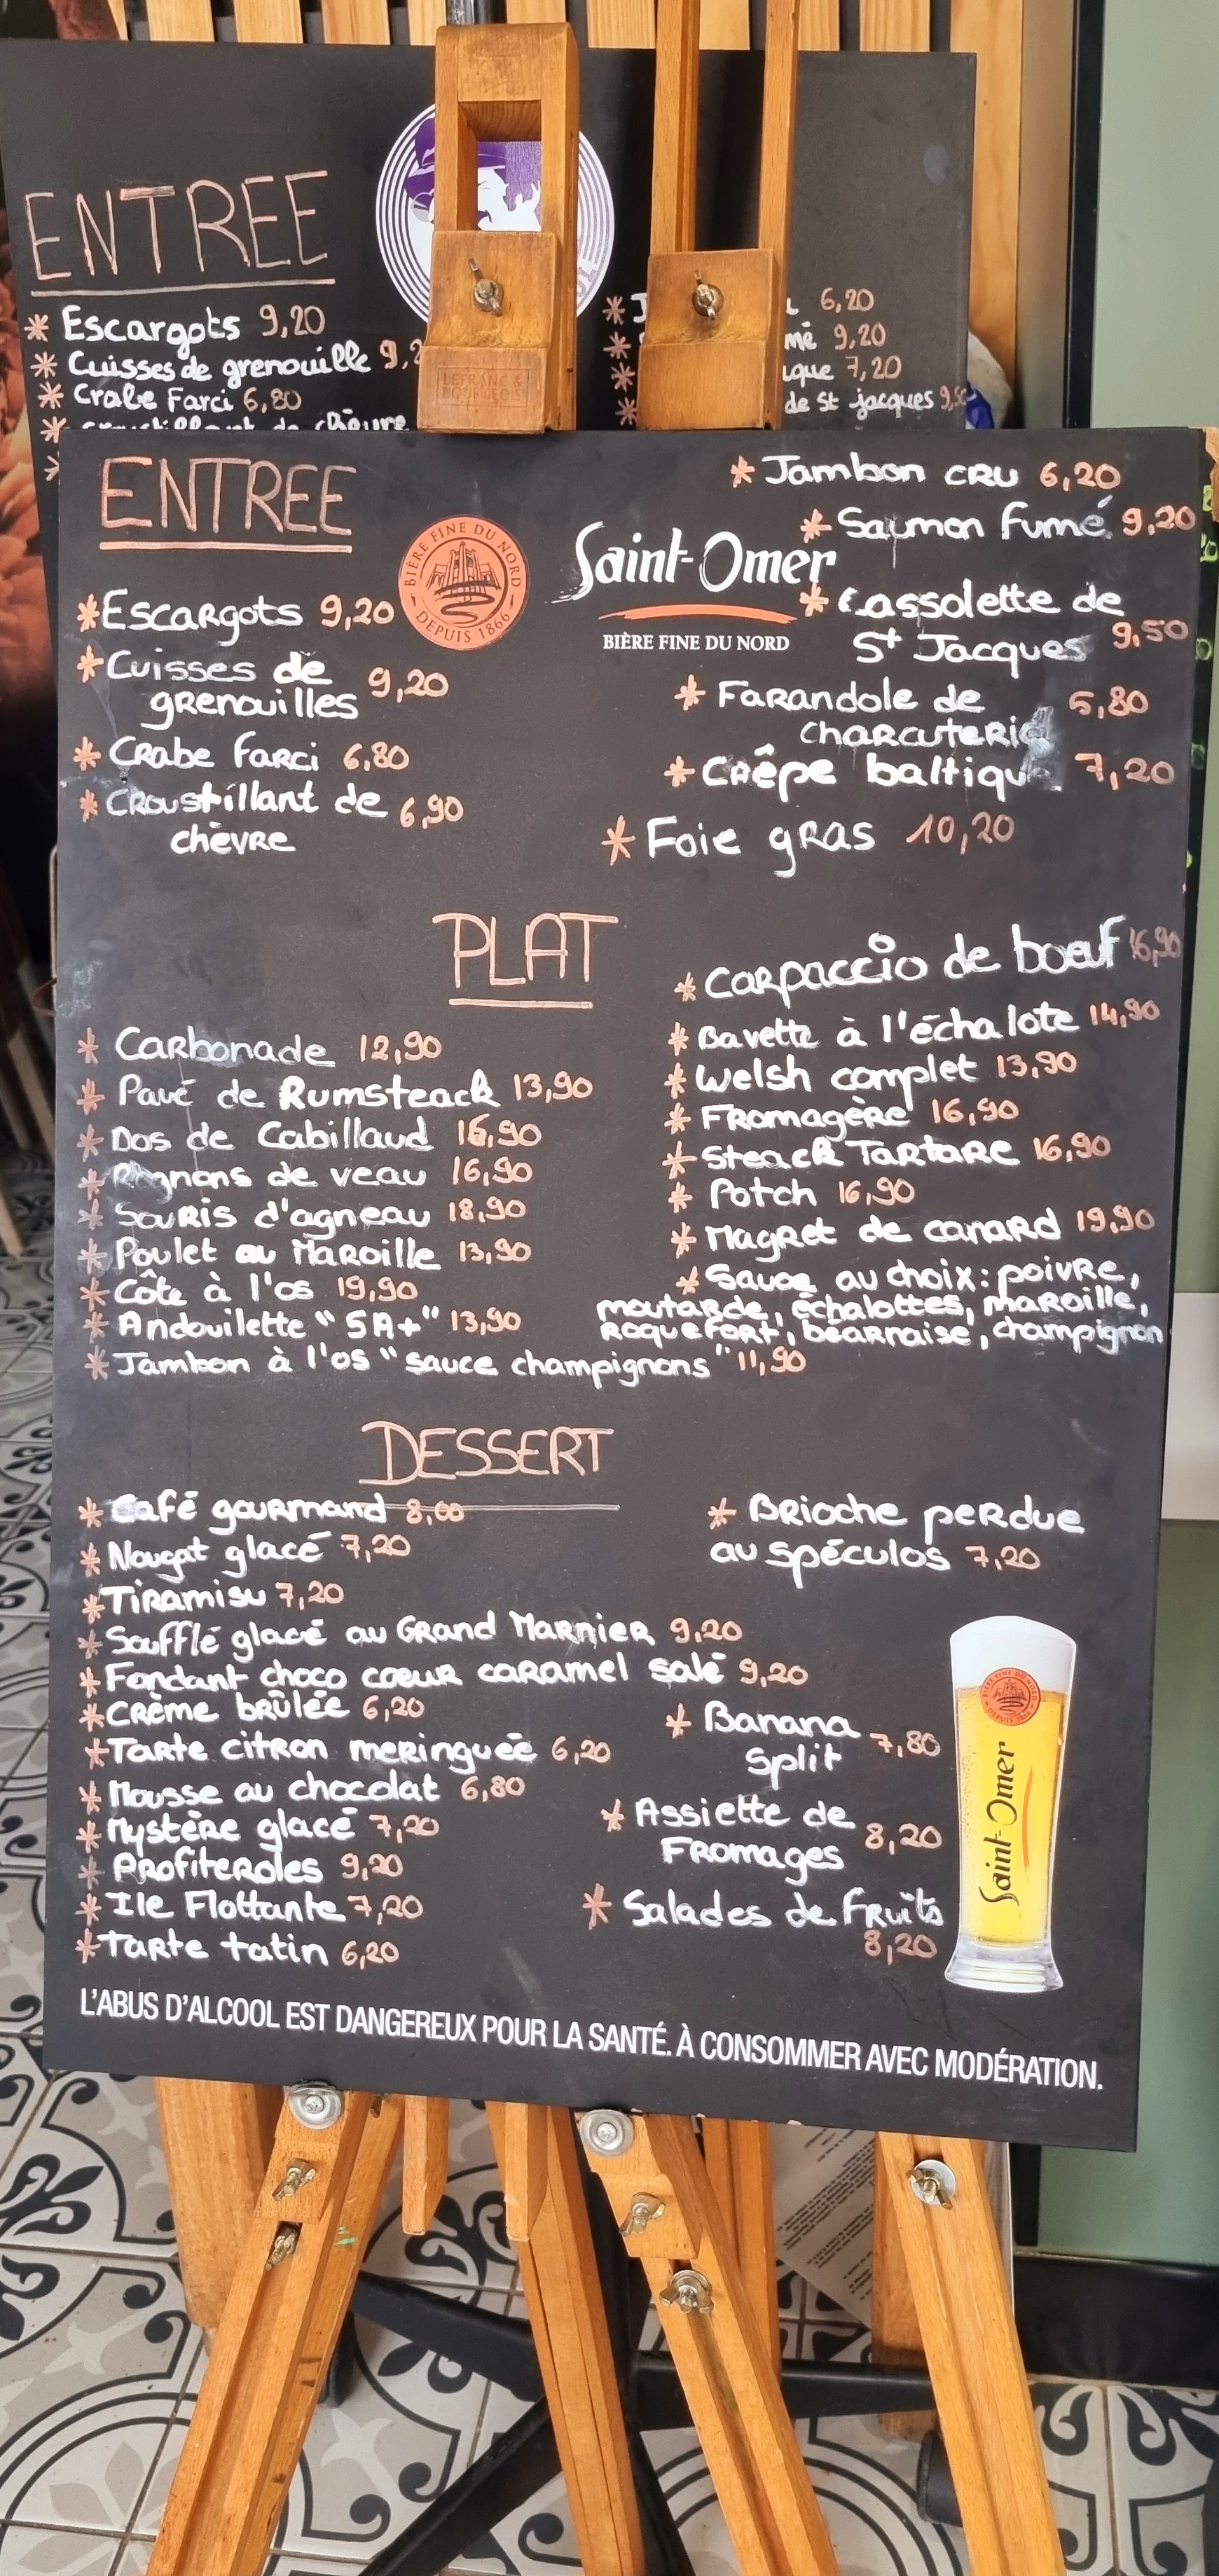 ENTREE
* Escargots 9,20
* Cuisses de grenouille 9,2
* Crabe Farci 6,80
croustillant de chèvre
6,20
9,20
7,20
de St jacques 9,50
LEFRANC &
BOURGEOIS
ENTREE
*Escargots 9,20
*Cuisses de
grenouilles 9,20
* Crabe farci 6,80
* Croustillant de 6,90
chèvre
BIÈRE FINE DU NORD
DEPUIS 1866
Saint-Omer
BIÈRE FINE DU NORD
* Jambon cru 6,20
* Saumon fumé 9,20
* Cassolette de
St Jacques 9,50
* Farandole de 6,80
charcuterie
* Crêpe baltique 7,20
* Foie gras 10,20
PLAT
* Carbonade 12,90
* Pavé de Rumsteack 13,90
* Dos de Cabillaud 16,90
* Rognons de veau 16,90
* Souris d'agneau 18,90
* Poulet au Maroille 13,90
* Côte à l'os 19,90
* Andouilette "5A+" 13,90
* Jambon à l'os "sauce champignons" 11,90
* Carpaccio de boeuf 16,90
* Bavette à l'échalote 14,90
* Welsh complet 13,90
* Fromagère 16,90
* Steack Tartare 16,90
* Potch 16,90
* Magret de canard 19,90
* Sauce au choix: poivre,
moutarde, échalottes, maroille,
roquefort, béarnaise, champignon
DESSERT
* Café gourmand 8,00
* Nougat glacé 7,20
* Tiramisu 7,20
* Soufflé glacé au Grand Marnier 9,20
* Fondant choco coeur caramel salé 9,20
* Crème brûlée 6,20
* Tarte citron meringuée 6,20
* Mousse au chocolat 6,80
* Mystère glacé 7,20
* Profiteroles 9,20
* Ile Flottante 7,20
* Tarte tatin 6,20
* Brioche perdue
au spéculos 7,20
* Banana
Split 7,80
* Assiette de
Fromages 8,20
* Salades de fruits
8,20
BIÈRE FINE DU NORD
DEPUIS 1866
Saint-Omer
L'ABUS D'ALCOOL EST DANGEREUX POUR LA SANTÉ. À CONSOMMER AVEC MODÉRATION.